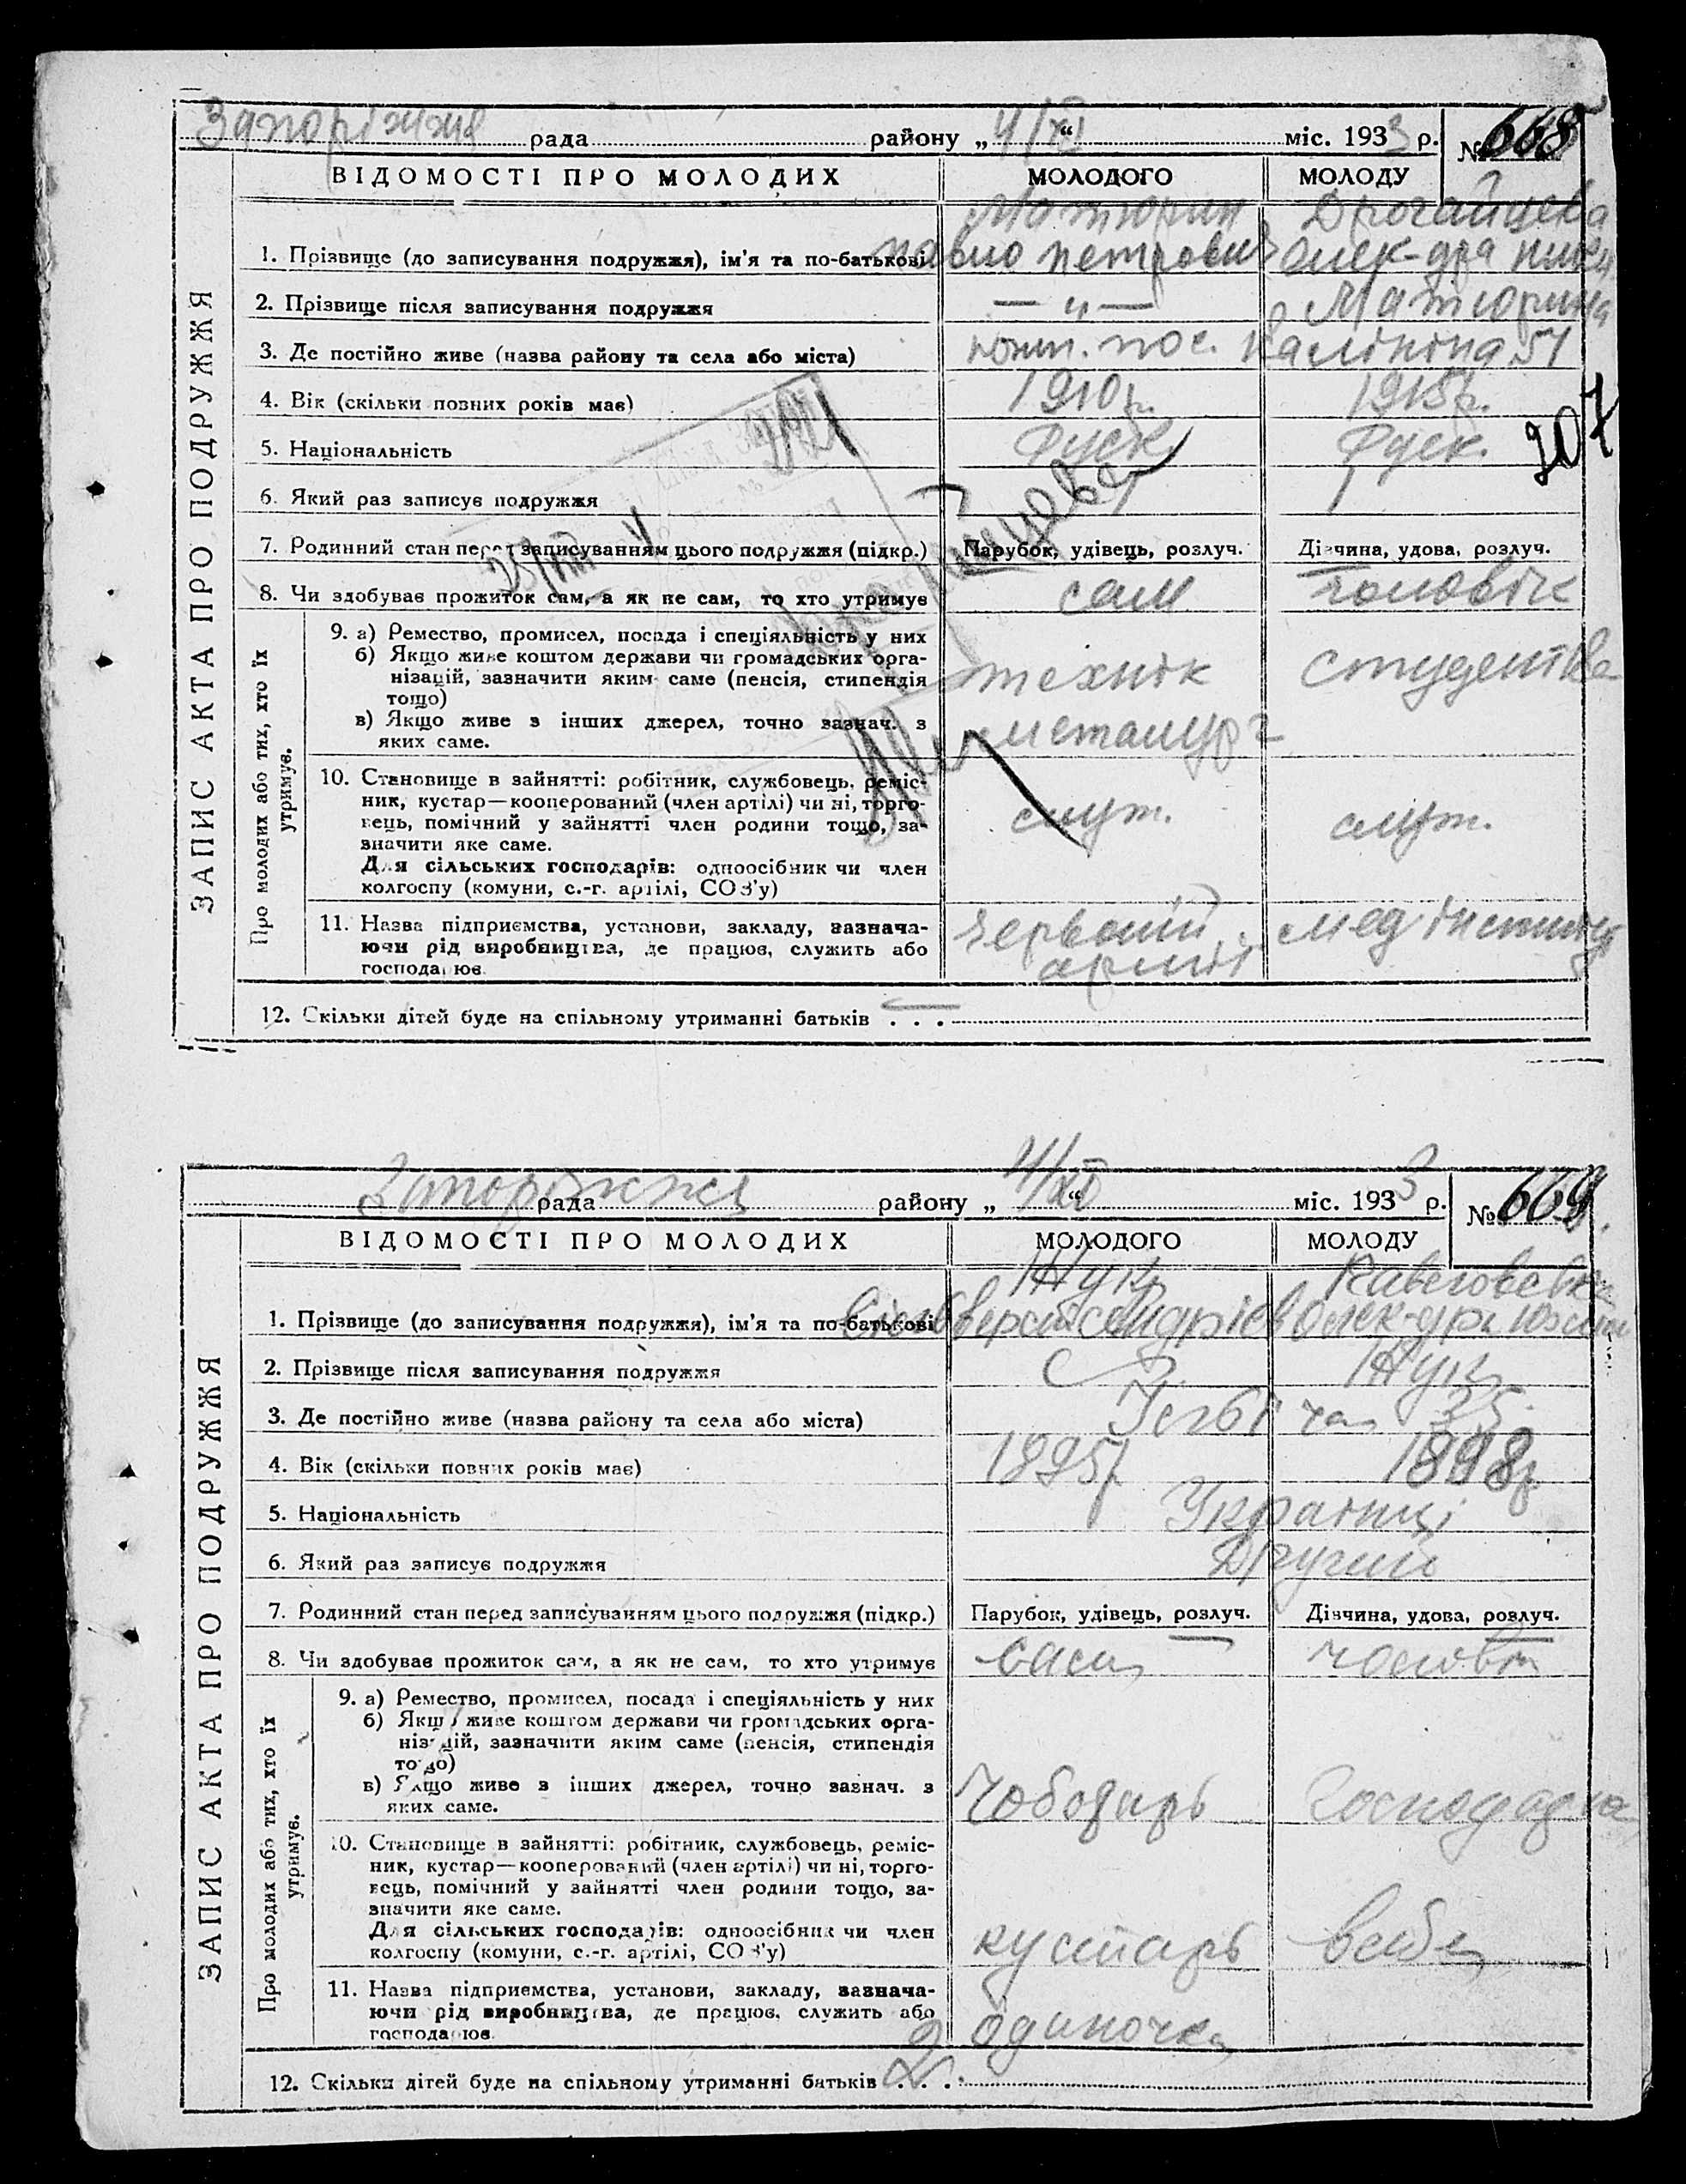 Запоріжжя рада району „ 4/XI “ міс. 1933 р. № 668
ВІДОМОСТІ ПРО МОЛОДИХ МОЛОДОГО МОЛОДУ
ЗАПИС АКТА ПРО ПОДРУЖЖЯ
Матюрин
1. Прізвище (до записування подружжя), ім'я та по-батькові Павло Петрович Олек-дра
2. Прізвище після записування подружжя — „ — Матюрина
3. Де постійно живе (назва району та села або міста) пос. Калініна 51
4. Вік (скільки повних років має) 1910 р. 1915 р.
207
5. Національність Руск. Руск.
6. Який раз записує подружжя I I
7. Родинний стан перед записуванням цього подружжя (підкр.) Парубок, удівець, розлуч. Дівчина, удова, розлуч.
25/VIII
8. Чи здобував прожиток сам, а як не сам, то хто утримує сам чоловік
Про молодих або тих, хто їх утримує.
9. а) Ремество, промисел, посада і спеціяльність у них
б) Якщо живе коштом держави чи громадських орга-
нізацій, зазначити яким саме (пенсія, стипендія
тощо)
в) Якщо живе з інших джерел, точно зазнач. з
яких саме.
технік студентка
металург
10. Становище в зайнятті: робітник, службовець, реміс-
ник, кустар—кооперований (член артілі) чи ні, торго-
вець, помічний у зайнятті член родини тощо, за-
значити яке саме.
Для сільських господарів: одноосібник чи член
колгоспу (комуни, с.-г. артілі, СОЗ'у)
служ. служ.
11. Назва підприємства, установи, закладу, зазнача-
ючи рід виробництва, де працює, служить або
господарює.
Червоній мед інститут
армії
12. Скільки дітей буде на спільному утриманні батьків . . . —
Запоріжжя рада району „ 4/XI “ міс. 1933 р. № 669
ВІДОМОСТІ ПРО МОЛОДИХ МОЛОДОГО МОЛОДУ
ЗАПИС АКТА ПРО ПОДРУЖЖЯ
Жук
1. Прізвище (до записування подружжя), ім'я та по-батькові Олек-дра
2. Прізвище після записування подружжя Жук
3. Де постійно живе (назва району та села або міста) 35
4. Вік (скільки повних років має) 1895 р. 1898 р.
5. Національність Українці
6. Який раз записує подружжя Другий
7. Родинний стан перед записуванням цього подружжя (підкр.) Парубок, удівець, розлуч. Дівчина, удова, розлуч.
8. Чи здобував прожиток сам, а як не сам, то хто утримує сам чоловік
Про молодих або тих, хто їх утримує.
9. а) Ремество, промисел, посада і спеціяльність у них
б) Якщо живе коштом держави чи громадських орга-
нізацій, зазначити яким саме (пенсія, стипендія
тощо)
в) Якщо живе з інших джерел, точно зазнач. з
яких саме.
Чоботарь
10. Становище в зайнятті: робітник, службовець, реміс-
ник, кустар—кооперований (член артілі) чи ні, торго-
вець, помічний у зайнятті член родини тощо, за-
значити яке саме.
Для сільських господарів: одноосібник чи член
колгоспу (комуни, с.-г. артілі, СОЗ'у)
кустарь
11. Назва підприємства, установи, закладу, зазнача-
ючи рід виробництва, де працює, служить або
господарює.
одиночка
12. Скільки дітей буде на спільному утриманні батьків . . . 2